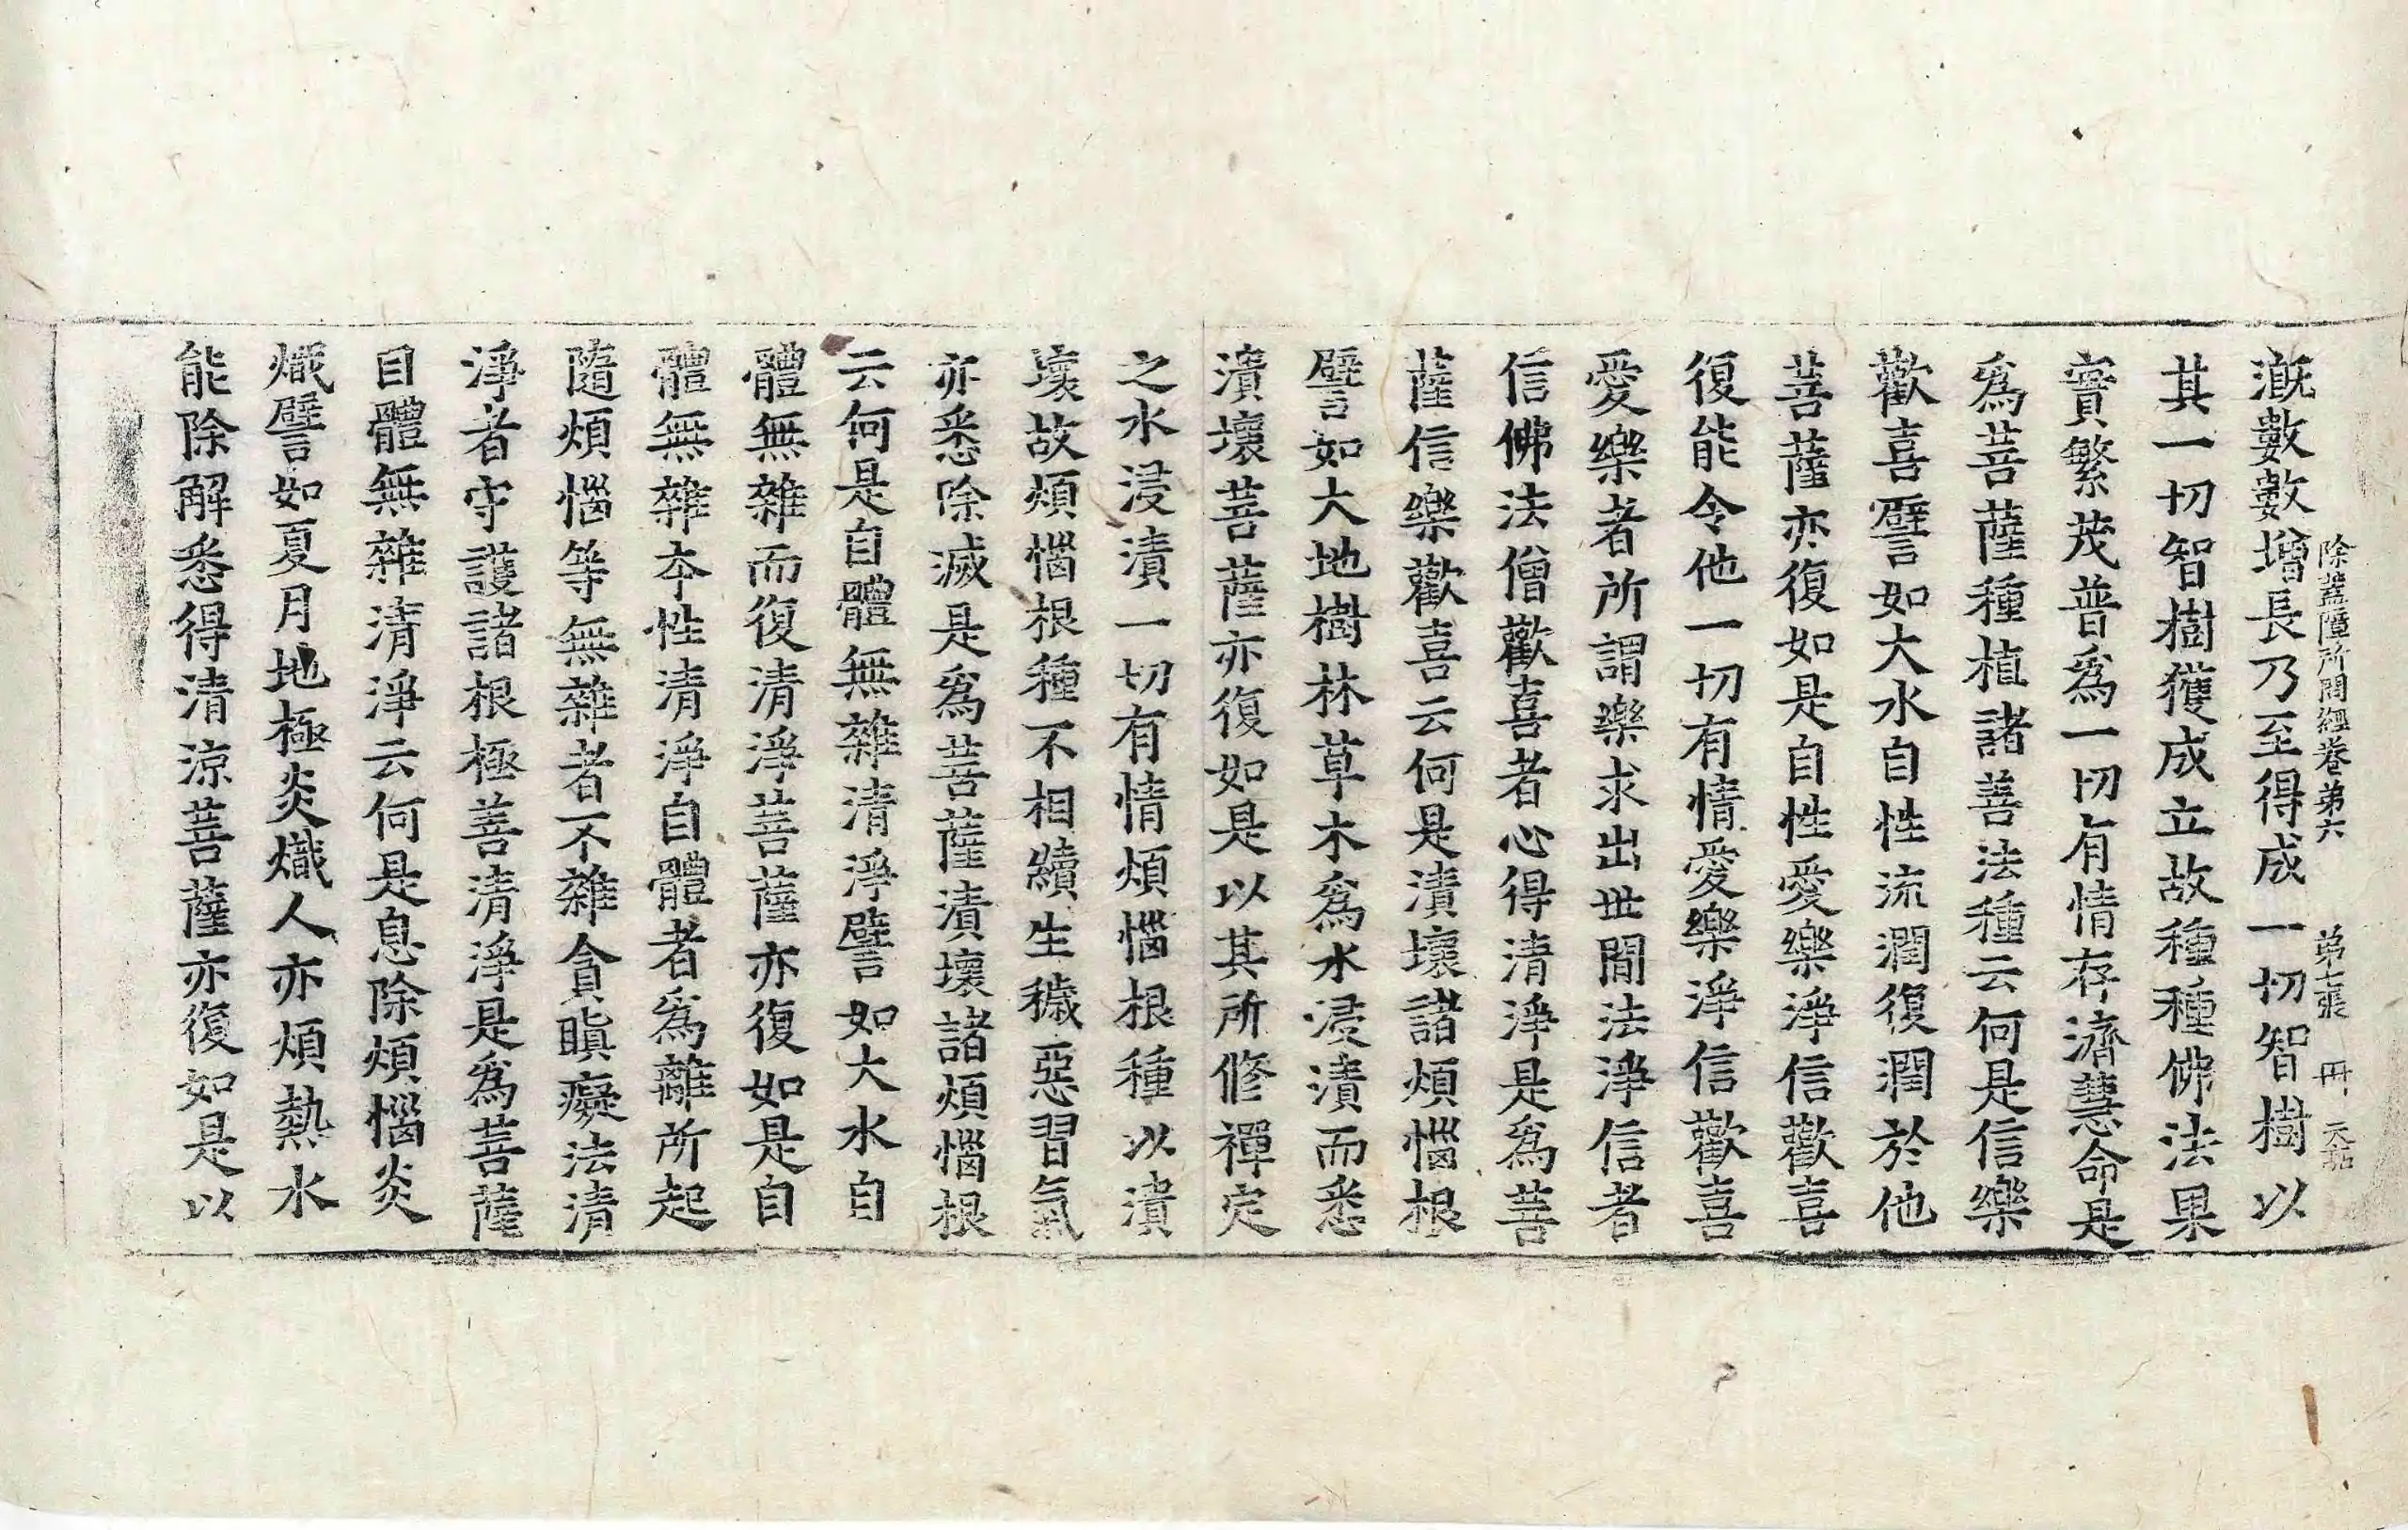 除蓋障所問經卷第六 第七張 冊
溉數數增長乃至得成一切智樹以
其一切智樹獲成立故種種佛法果
實繁茂普爲一切有情存濟慧命是
爲菩薩種植諸善法種云何是信樂
歡喜譬如大水自性流潤復潤於他
菩薩亦復如是自性愛樂淨信歡喜
復能令他一切有情愛樂淨信歡喜
愛樂者所謂樂求出世間法淨信者
信佛法僧歡喜者心得清淨是爲菩
薩信樂歡喜云何是漬壞諸煩惱根
譬如大地樹林草木爲水浸漬而悉
漬壞菩薩亦復如是以其所修禪定
之水浸漬一切有情煩惱根種以漬
壞故煩惱根種不相續生穢惡習氣
亦悉除滅是爲菩薩漬壞諸煩惱根
云何是自體無雜清淨譬如大水自
體無雜而復清淨菩薩亦復如是自
體無雜本性清淨自體者爲離所起
隨煩惱等無雜者不雜貪瞋癡法清
淨者守護諸根極善清淨是爲菩薩
自體無雜清淨云何是息除煩惱炎
熾譬如夏月地極炎熾人亦煩熱水
能除解悉得清涼菩薩亦復如是以